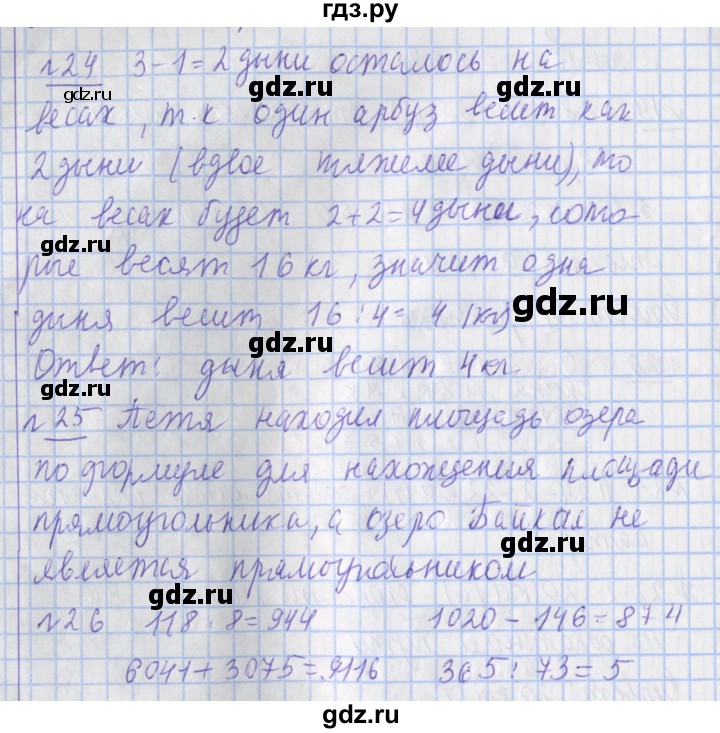 гдз.ру
№24 3-1=2 дыни осталось на
gdz.ru gdz.ru
весах, т.к один арбуз весит как
gdz.ru
2 дыни (вдвое тяжелее дыни), то
на весах будет 2+2=4 дыни, кото-
gdz.ru gdz.ru
рые весят 16 кг, значит одна
дыня весит 16:4= 4 (кг)
gdz.ru gdz.ru
Ответ: дыня весит 4 кг.
gdz.ru
№25 Петя находил площадь озера
по формуле для нахождения площади
gdz.ru
прямоугольника, а озеро Байкал не
gdz.ru
является прямоугольником
№26 118·8=944 1020-146=874
gdz.ru
6041+3075=9116 365:73=5
gdz.ru gdz.ru